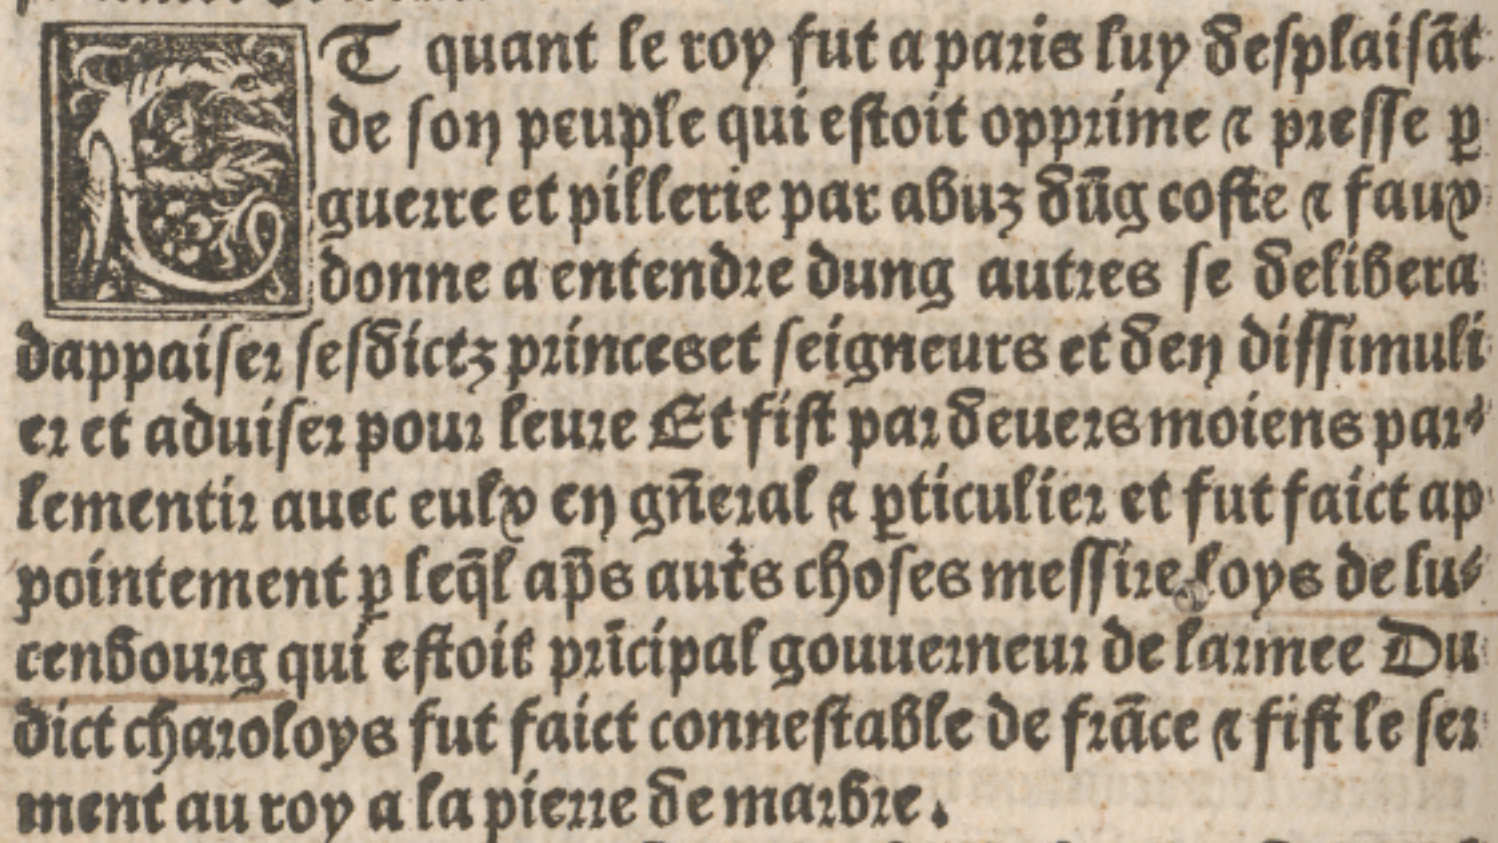 ET quant le roy fut a paris luy desplaisãt
de son peuple qui estoit opprime ⁊ presse ꝑ
guerre et pillerie par abuz dũg coste ⁊ faux
donne a entendre dung autres se delibera
dappaiser sesdictz princeset seigneurs et den dissimuli
er et aduiser pour leure Et fist par deuers moiens par⸗
lementir auec eulx en gñeral ⁊ ꝑticulier et fut faict ap
pointement ꝑ leq̃l ap̃s autr̃s choses messire loys de lu⸗
cenbourg qui estoit prĩcipal gouuerneur de larmee Du
dict charoloys fut faict connestable de frãce ⁊ fist le ser
ment au roy a la pierre de marbre.